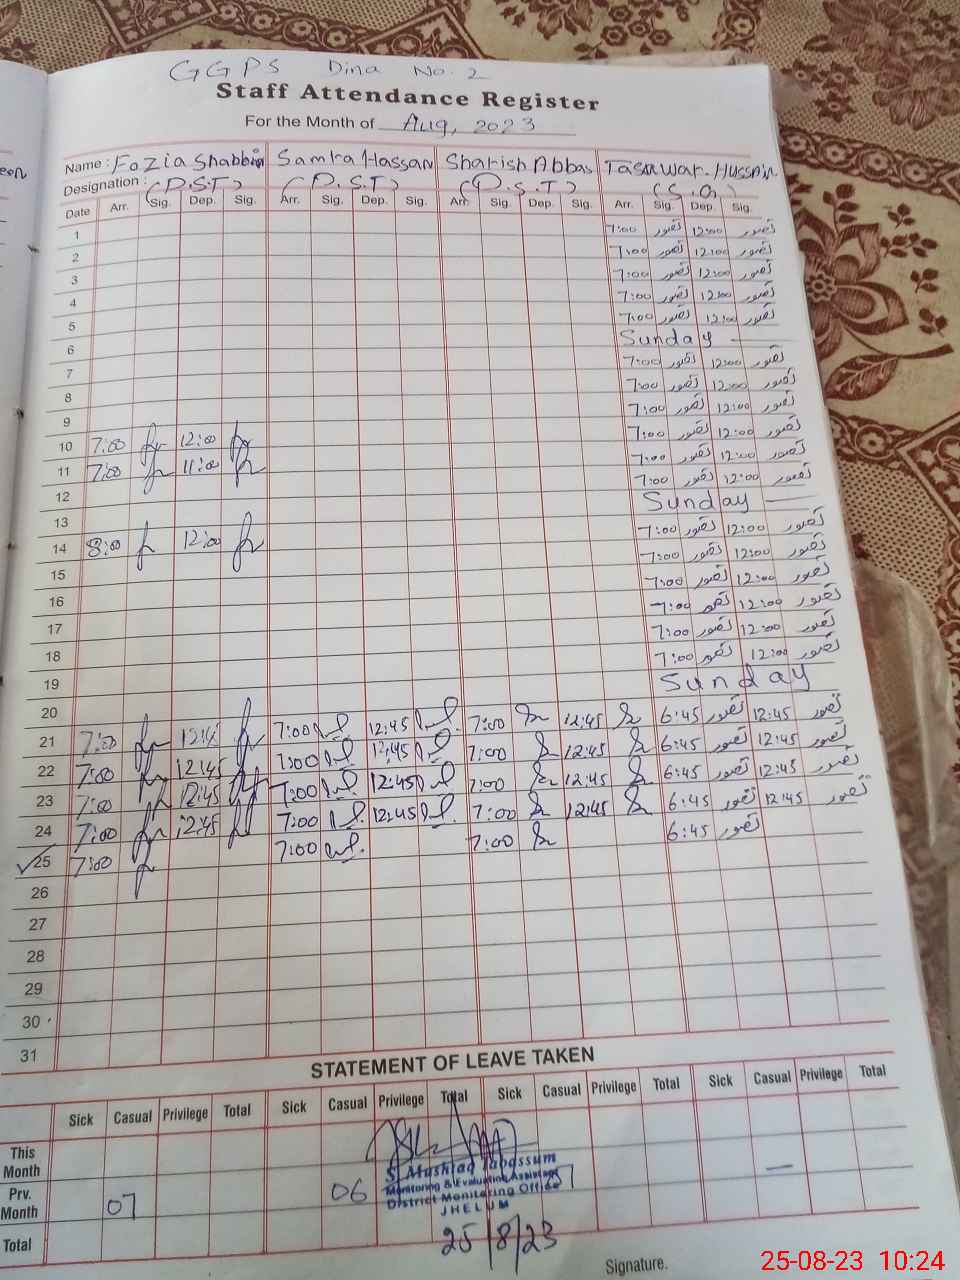 GGPS Dina No. 2
Staff Attendance Register
For the Month of Aug, 2023
Name : Fozia Shabbir Samra Hassan Sharish Abbas Tasawar Hussain
Designation : (P.S.T) (P.S.T) (P.S.T) (S.G)
Date Arr. Sig. Dep. Sig. Arr. Sig. Dep. Sig. Arr. Sig. Dep. Sig. Arr. Sig. Dep. Sig.
1 7:00 تصور 12:00 تصور
2 7:00 تصور 12:00 تصور
3 7:00 تصور 12:00 تصور
4 7:00 تصور 12:00 تصور
5 7:00 تصور 12:00 تصور
6 Sunday
7 7:00 تصور 12:00 تصور
8 7:00 تصور 12:00 تصور
9 7:00 تصور 12:00 تصور
10 7:00 12:00 7:00 تصور 12:00 تصور
11 7:00 11:00 7:00 تصور 12:00 تصور
12 7:00 تصور 12:00 تصور
13 Sunday
14 8:00 12:00 7:00 تصور 12:00 تصور
15 7:00 تصور 12:00 تصور
16 7:00 تصور 12:00 تصور
17 7:00 تصور 12:00 تصور
18 7:00 تصور 12:00 تصور
19 7:00 تصور 12:00 تصور
20 Sunday
21 7:00 12:45 7:00 12:45 7:00 12:45 6:45 تصور 12:45 تصور
22 7:00 12:45 7:00 12:45 7:00 12:45 6:45 تصور 12:45 تصور
23 7:00 12:45 7:00 12:45 7:00 12:45 6:45 تصور 12:45 تصور
24 7:00 12:45 7:00 12:45 7:00 12:45 6:45 تصور 12:45 تصور
25 7:00 7:00 7:00 6:45 تصور
26
27
28
29
30
31
STATEMENT OF LEAVE TAKEN
Sick Casual Privilege Total Sick Casual Privilege Total Sick Casual Privilege Total Sick Casual Privilege Total
This Month
Prv. Month 07 06 07
Total
S. Mushtaq Tabassum
Monitoring & Evaluating Assistant
District Monitoring Office
JHELUM
25/8/23
Signature.
25-08-23 10:24